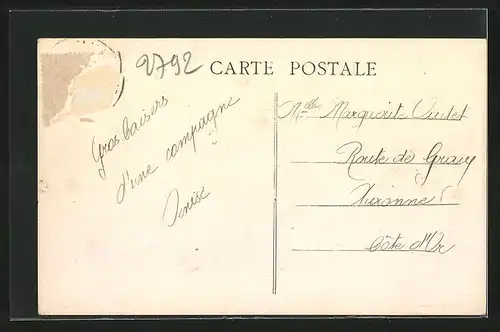 2792
CARTE POSTALE
Gros baisers
d'une compagne
Denise
Melle Marguerit
Route de Gray
Auxonne
Côte d'Or